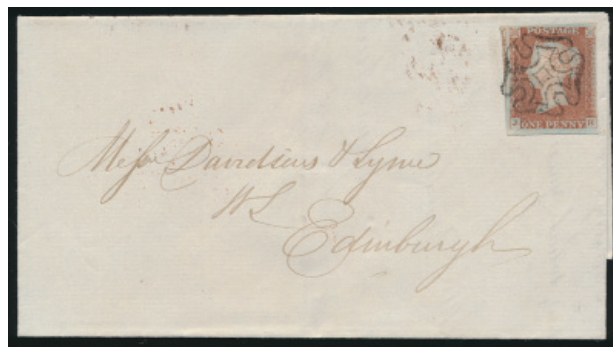 POSTAGE
ONE PENNY
Messrs Davidsons & Syme
WS
Edinburgh